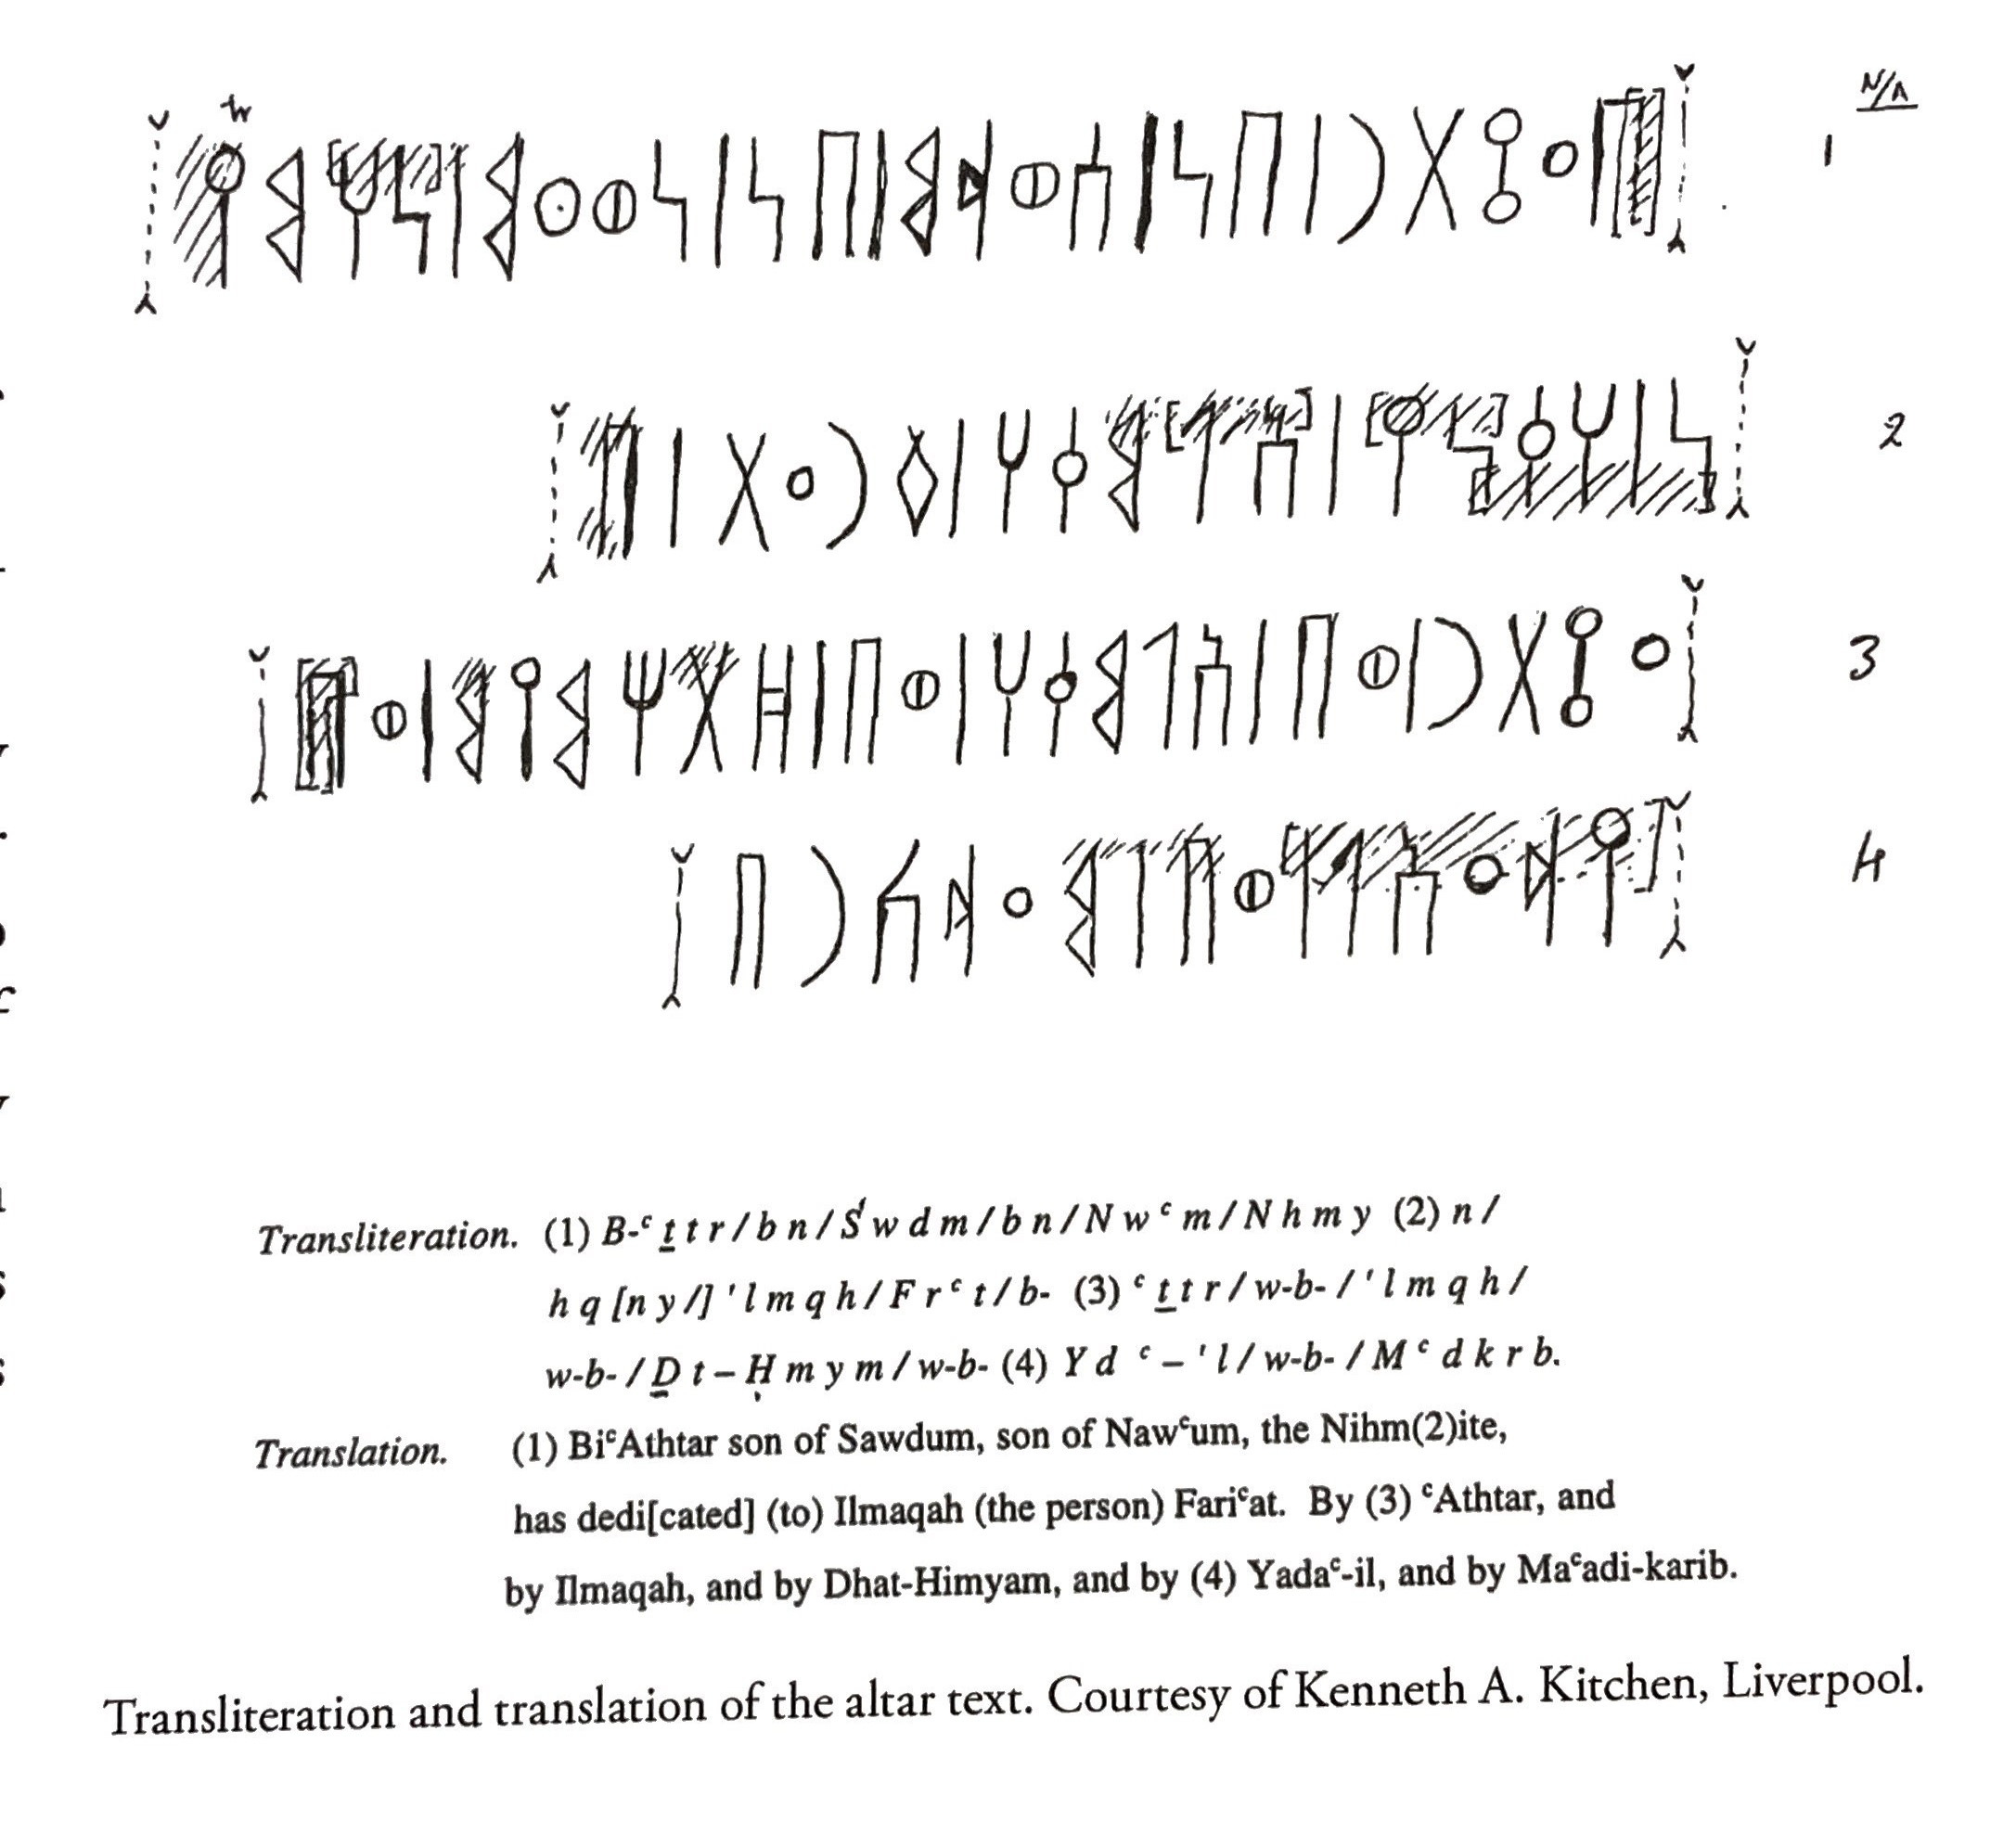 N/A
1 𐩨𐩲𐩻𐩩𐩧𐩽𐩨𐩬𐩽𐩪𐩥𐩵𐩣𐩽𐩨𐩬𐩽𐩬𐩥𐩲𐩣𐩽𐩬𐩠𐩣𐩺
2 𐩬𐩽𐩠𐩤[𐩬𐩺]𐩽𐩱𐩡𐩣𐩤𐩠𐩽𐩰𐩧𐩲𐩩𐩽𐩨
3 𐩲𐩻𐩩𐩧𐩽𐩥𐩨𐩽𐩱𐩡𐩣𐩤𐩠𐩽𐩥𐩨𐩽𐩹𐩩𐩢𐩣𐩺𐩣𐩽𐩥𐩨
4 𐩺𐩵𐩲𐩱𐩡𐩽𐩥𐩨𐩽𐩣𐩲𐩵𐩫𐩧𐩨
Transliteration. (1) B-ᶜ ṯ t r / b n / Ś w d m / b n / N w ᶜ m / N h m y (2) n /
h q [n y /] ' l m q h / F r ᶜ t / b- (3) ᶜ ṯ t r / w-b- / ' l m q h /
w-b- / Ḏ t – Ḥ m y m / w-b- (4) Y d ᶜ – ' l / w-b- / M ᶜ d k r b.
Translation. (1) BiᶜAthtar son of Sawdum, son of Nawᶜum, the Nihm(2)ite,
has dedi[cated] (to) Ilmaqah (the person) Fariᶜat. By (3) ᶜAthtar, and
by Ilmaqah, and by Dhat-Himyam, and by (4) Yadaᶜ-il, and by Maᶜadi-karib.
Transliteration and translation of the altar text. Courtesy of Kenneth A. Kitchen, Liverpool.